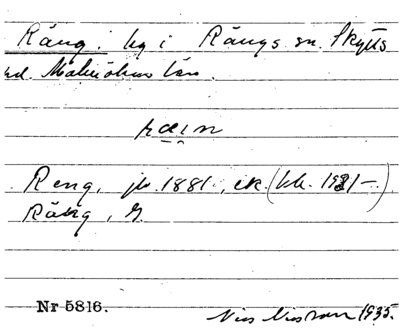 Räng, by i Rängs sn. Skytts
hd. Malmöhus län.
ræin
Reng, jb. 1881, ek. (bl. 1921-)
Räng, G.
Nr 5816. Nils Nilsson 1935.